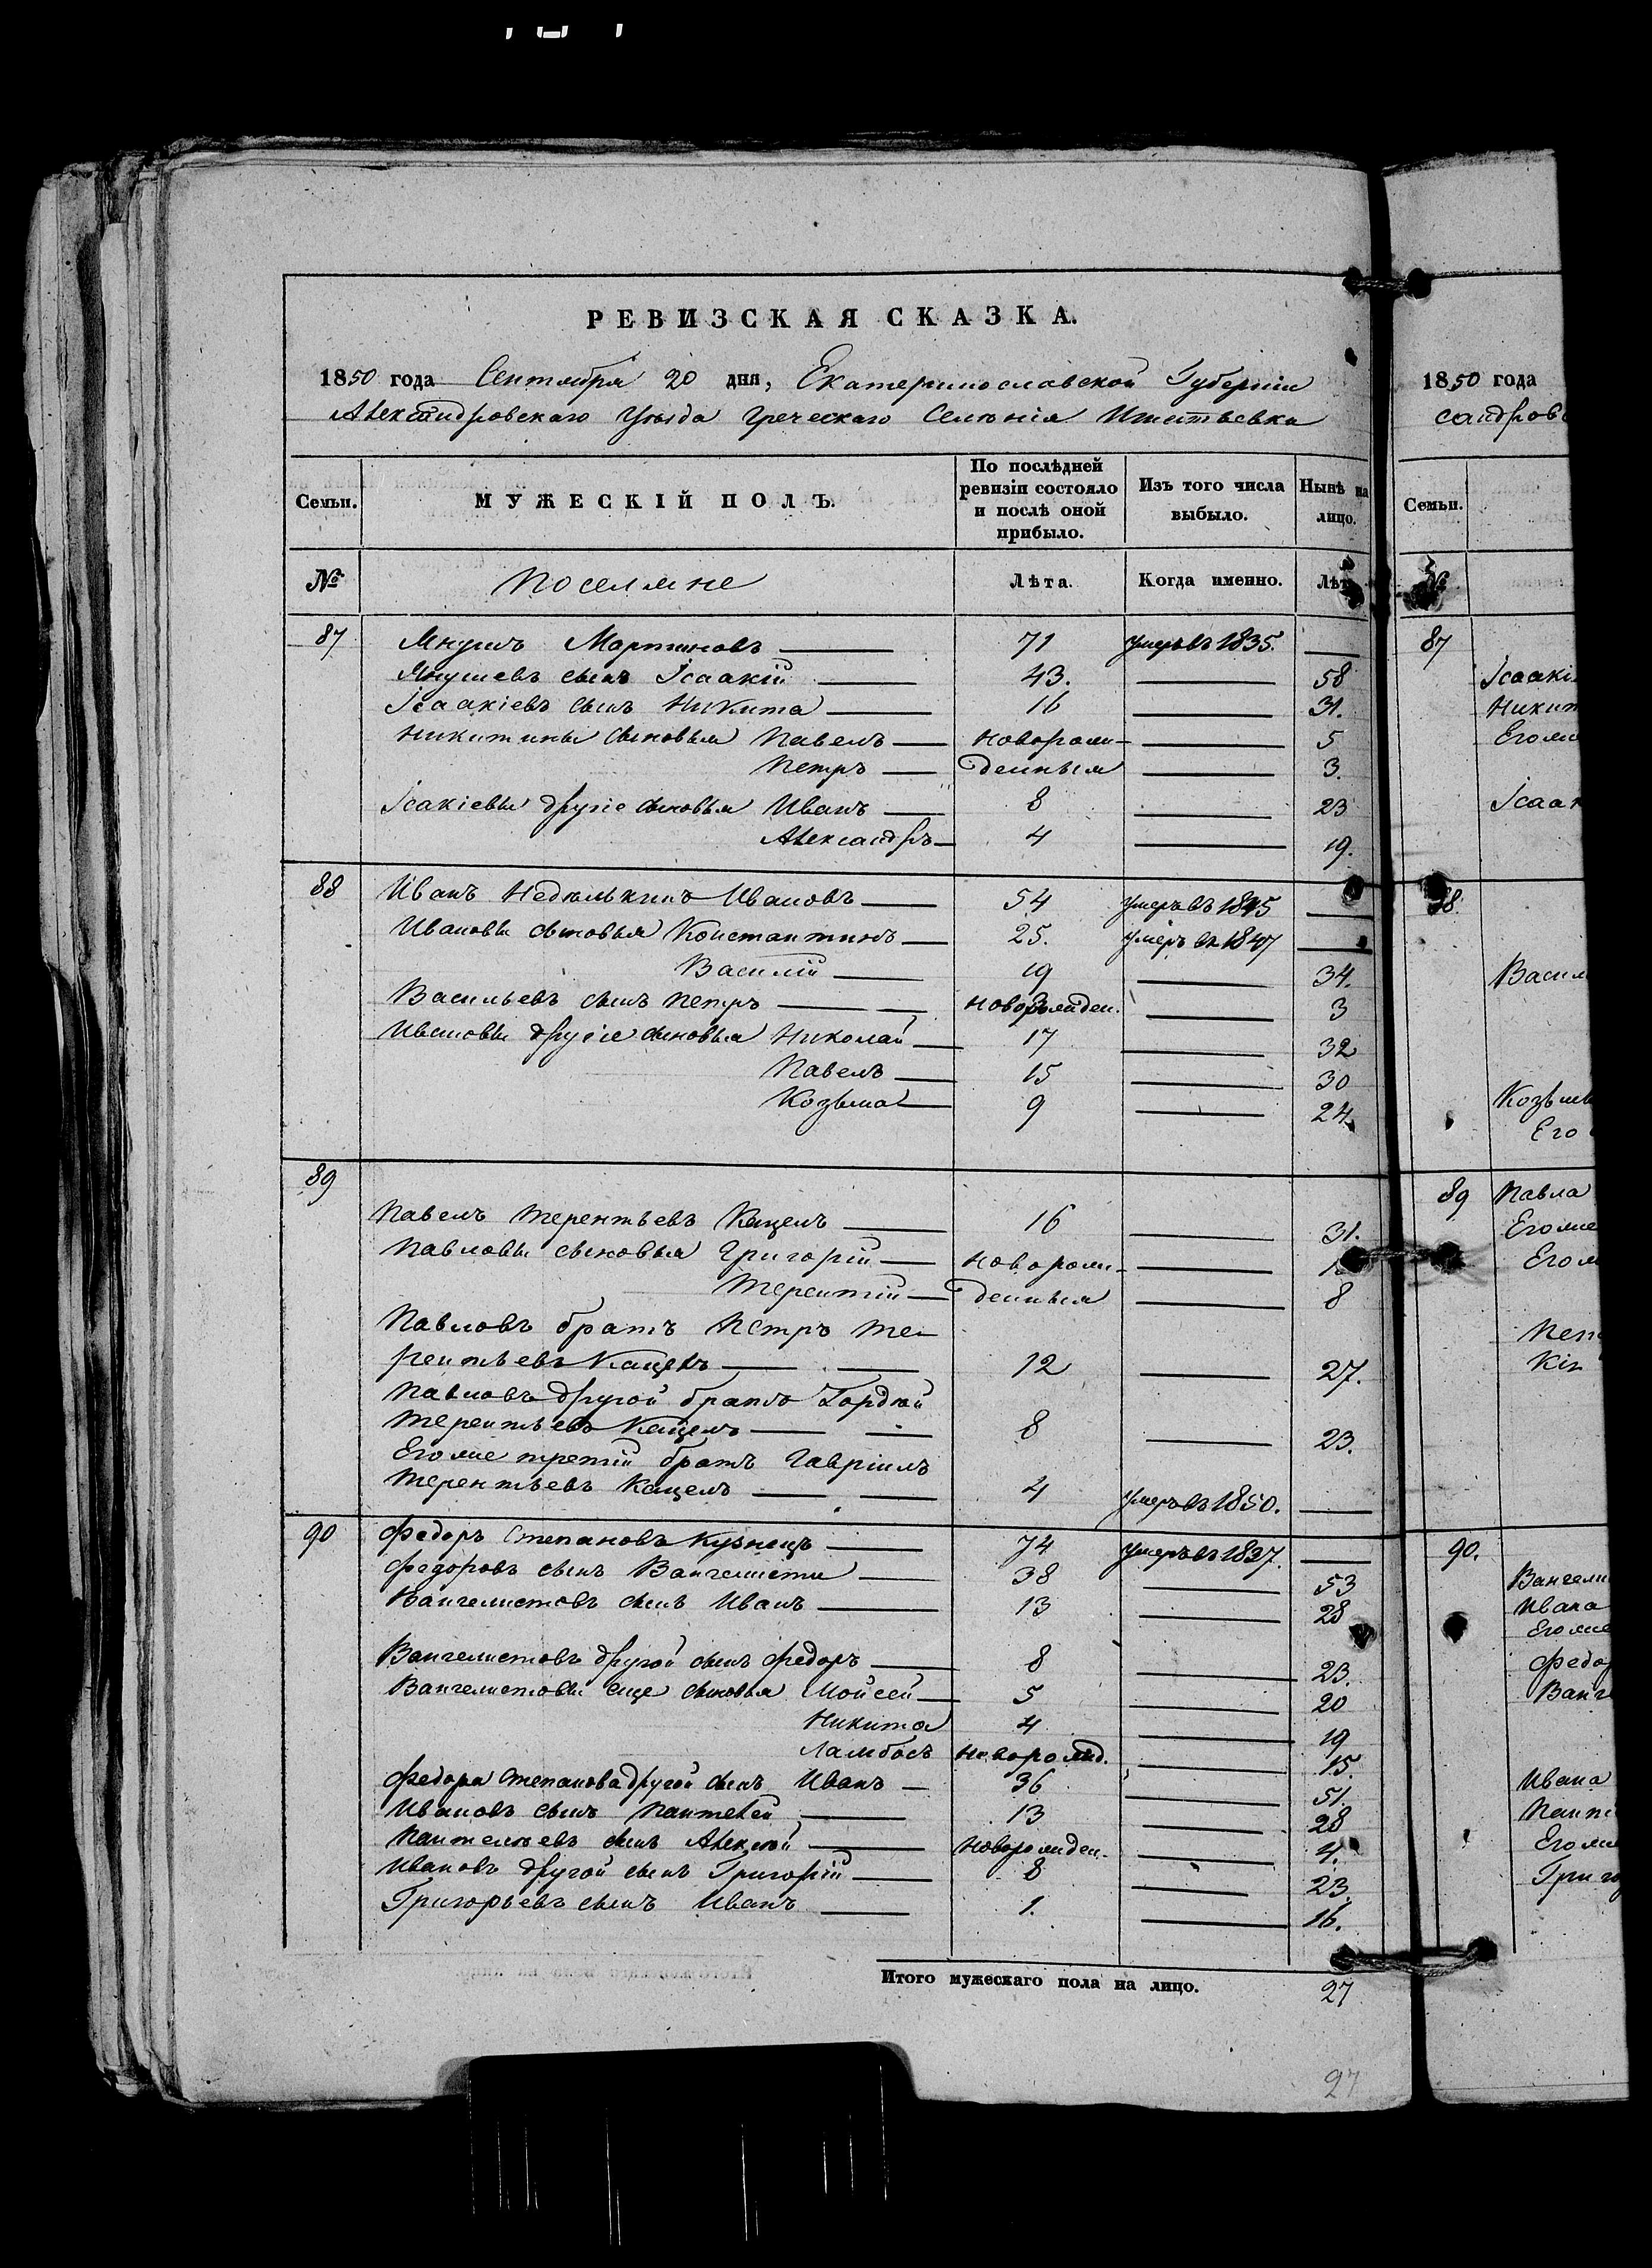 РЕВИЗСКАЯ СКАЗКА.
1850 года Сентября 20 дня, Екатеринославской Губерніи
Александровскаго Уѣзда Греческаго Селенія Игнатьевка
Семьи. МУЖЕСКІЙ ПОЛЪ. По послѣдней ревизіи состояло и послѣ оной прибыло. Изъ того числа выбыло. Нынѣ на лицо.
№ Поселяне Лѣта. Когда именно. Лѣта
87 Янушъ Мартиновъ 71 умеръ въ 1835.
Янушевъ сынъ Ісаакій 43. 58
Ісаакіевъ сынъ Никита 16 31.
Никитины сыновья Павелъ новорож- 5
Петръ денныя 3.
Ісакіевы другіе сыновья Иванъ 8 23
Александръ 4 19.
88 Иванъ Недѣлькинъ Ивановъ 54 умеръ въ 1845
Ивановы сыновья Константинъ 25. умеръ въ 1847
Василій 19 34.
Васильевъ сынъ Петръ новорожден. 3
Ивановы другіе сыновья Николай 17 32
Павелъ 15 30
Козьма 9 24.
89
Павелъ Терентьевъ Кацелъ 16 31.
Павловы сыновья Григорій новорож-
Терентій денныя 8
Павловъ братъ Петръ Те-
рентьевъ Кацелъ 12 27.
Павловъ другой братъ Гордѣй
Терентьевъ Кацелъ 8 23.
Его же третій братъ Гавріилъ
Терентьевъ Кацелъ 4 умеръ въ 1850.
90 Федоръ Степановъ Кузнецъ 74 умеръ въ 1837.
Федоровъ сынъ Вангелисти 38 53
Вангелистовъ сынъ Иванъ 13 28
Вангелистовъ другой сынъ Федоръ 8 23.
Вангелистовы еще сыновья Мойсей 5 20
Никита 4 19
Ламбосъ новорожд. 15.
Федора Степанова другой сынъ Иванъ 36 51.
Ивановъ сынъ Пантелей 13 28
Пантелеевъ сынъ Алексѣй новорожден. 4.
Ивановъ другой сынъ Григорій 8 23.
Григорьевъ сынъ Иванъ 1. 16.
Итого мужескаго пола на лицо. 27
27
1850 года
сандровс
Семьи.
№
87
Ісаакі
Никит
Его же
Ісаак
88.
Васил
Козьмы
Его
89 Павла
Его же
Его ж
Пет
90.
Вангели
Ивана
Его же
Федор
Ванг
Ивана
Панте
Его же
Григо